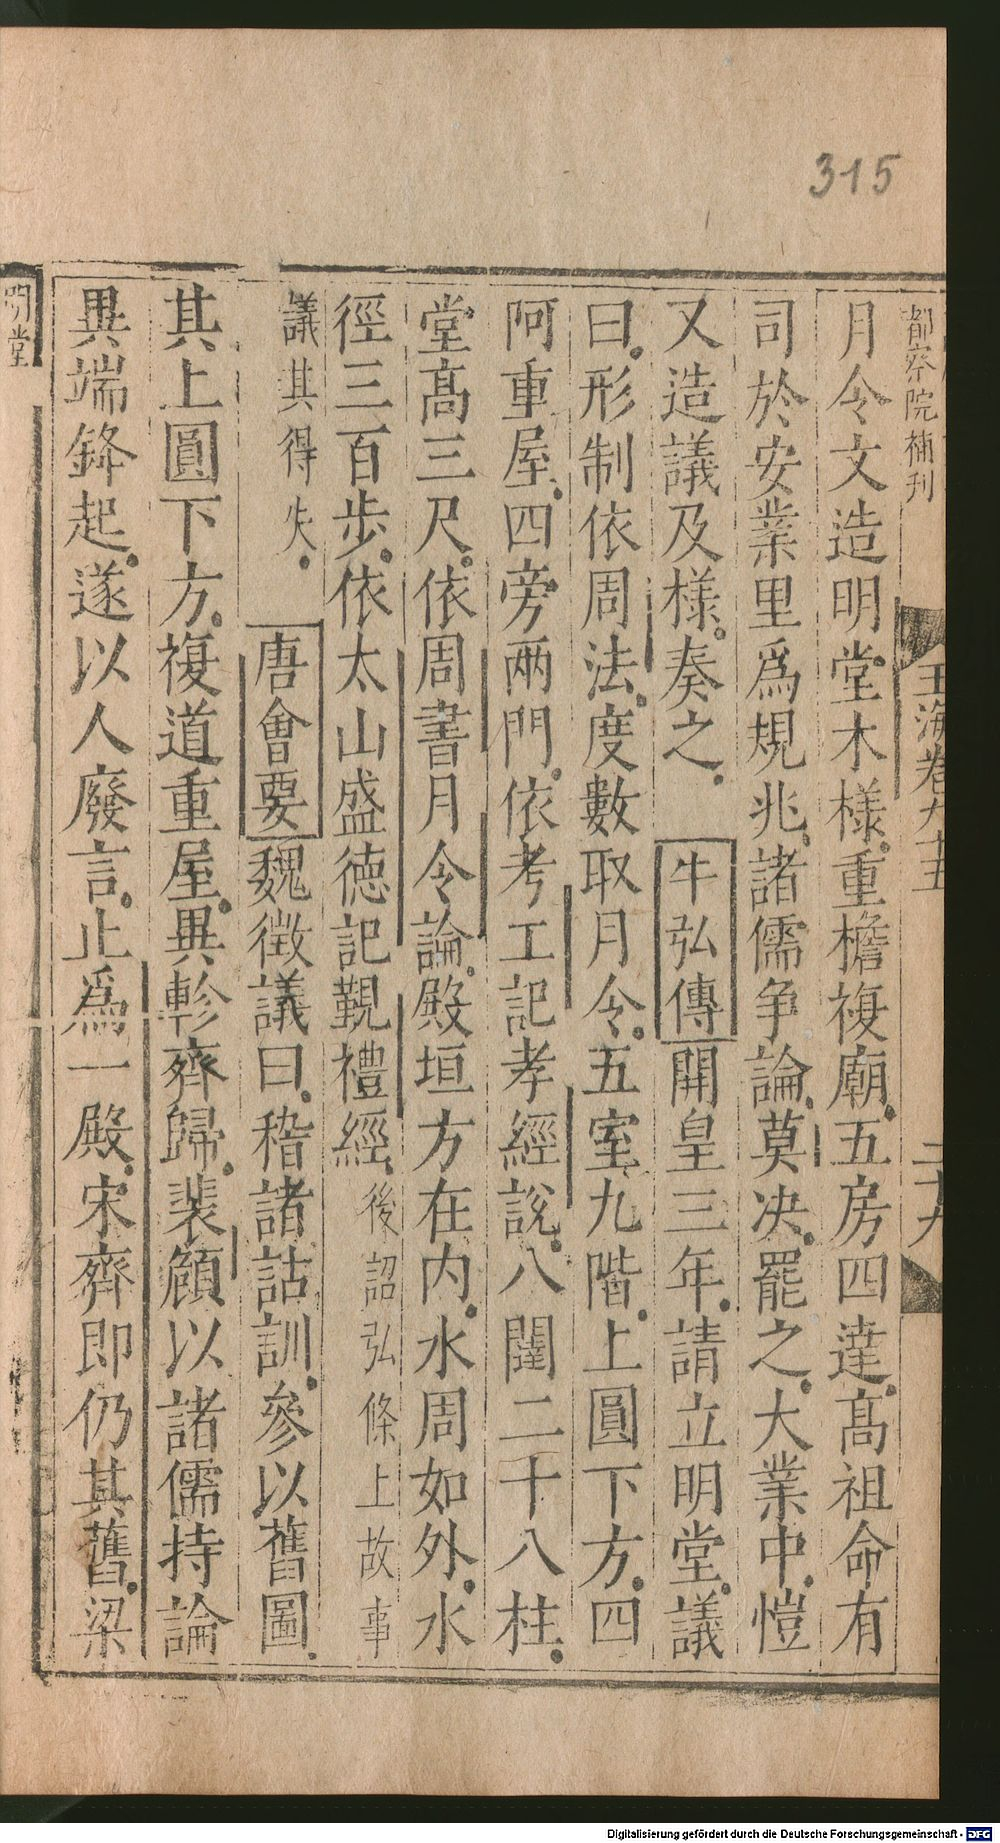 315
都察院補刋
玉海卷九十五
二十九
月令文造明堂木樣重檐複廟五房四達高祖命有
司於安業里爲規兆諸儒争論莫決罷之大業中愷
又造議及樣奏之 牛弘傳開皇三年請立明堂議
曰形制依周法度數取月令五室九階上圓下方四
阿重屋四旁兩門依考工記孝經說八闥二十八柱
堂高三尺依周書月令論殿垣方在内水周如外水
徑三百步依太山盛徳記覲禮經後詔弘條上故事
議其得失 唐會要魏徵議曰稽諸詁訓參以舊圖
其上圓下方複道重屋異軫齊歸裴頠以諸儒持論
異端鋒起遂以人廢言止爲一殿宋齊即仍其舊梁
明堂
Digitalisierung gefördert durch die Deutsche Forschungsgemeinschaft - DFG